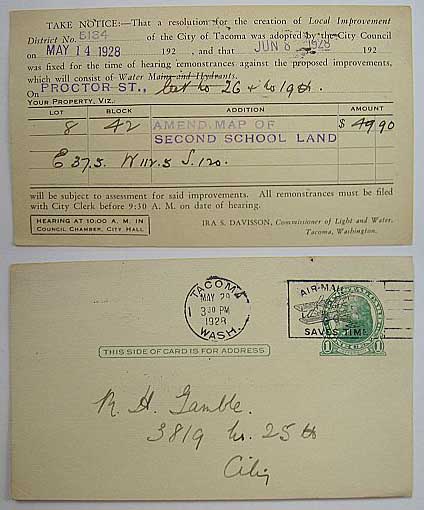 TAKE NOTICE:—That a resolution for the creation of Local Improvement
District No. 5134 of the City of Tacoma was adopted by the City Council
on MAY 14 1928 192 , and that JUN 6 1928 192
was fixed for the time of hearing remonstrances against the proposed improvements,
which will consist of Water Mains and Hydrants.
On PROCTOR ST., bet No 26 & No 19th.
YOUR PROPERTY, VIZ.
LOT BLOCK ADDITION AMOUNT
8 42 AMEND. MAP OF SECOND SCHOOL LAND $ 49.90
E 37.5 W 112.5 S. 120.
will be subject to assessment for said improvements. All remonstrances must be filed
with City Clerk before 9:30 A. M. on date of hearing.
HEARING AT 10:00 A. M. IN
COUNCIL CHAMBER, CITY HALL
IRA S. DAVISSON, Commissioner of Light and Water,
Tacoma, Washington.
TACOMA
MAY 29
3 30 PM
1928
WASH.
AIR-MAIL
SAVES TIME
1 1
THIS SIDE OF CARD IS FOR ADDRESS
R. H. Gamble.
3819 No. 25th
City